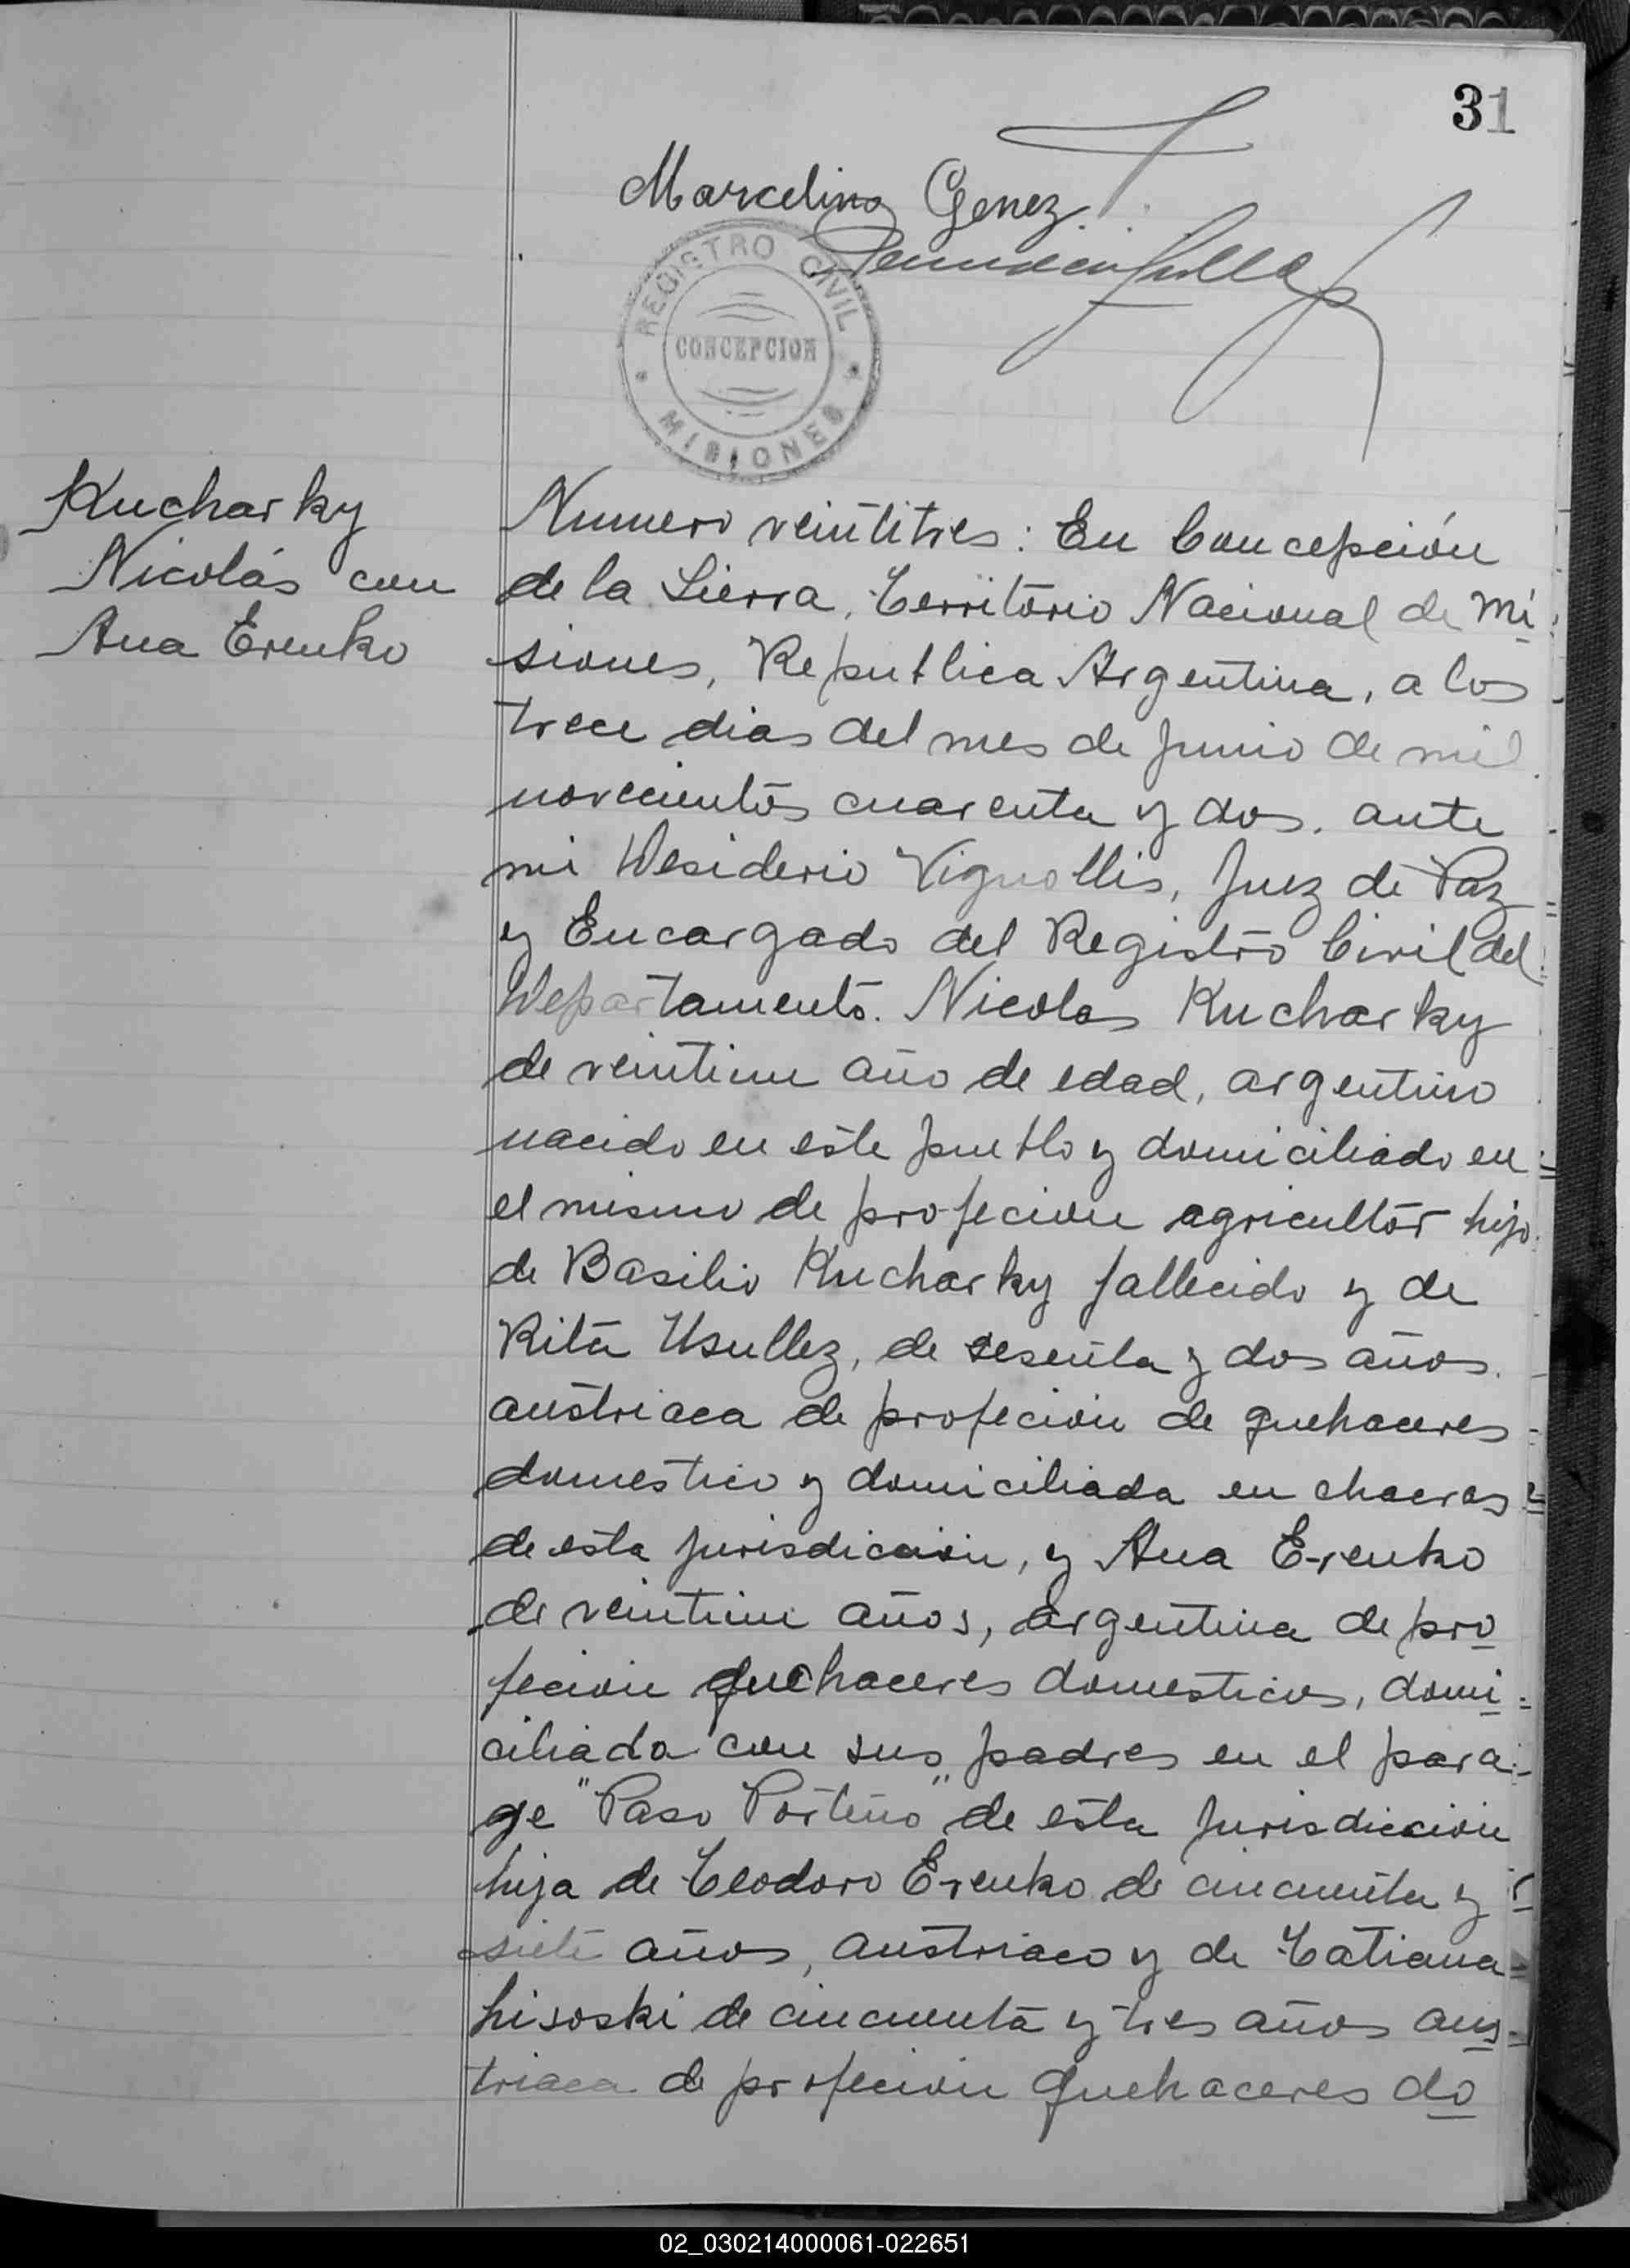 31
Marcelino Genez
REGISTRO CIVIL
CONCEPCION
MISIONES
Kucharky
Nicolás con
Ana Erenko
Numero veintitres: En Concepción
de la Sierra, Territorio Nacional de Mi
siones, Republica Argentina, a los
trece dias del mes de Junio de mil
novecientos cuarenta y dos, ante
mi Desiderio Vignollis, Juez de Paz
y Encargado del Registro Civil del
Departamento. Nicolas Kucharky
de veintiun año de edad, argentino
nacido en este pueblo y domiciliado en
el mismo de profecion agricultor hijo
de Basilio Kucharky fallecido y de
Rita Usullez, de sesenta y dos años.
austriaca de profecion de quehaceres
domestico y domiciliada en chacras
de esta jurisdiccion, y Ana Erenko
de veintiun años, argentina de pro
fecion quehaceres domesticos, domi-
ciliada con sus padres en el para-
ge "Paso Porteño" de esta Jurisdiccion
hija de Teodoro Erenko de cincuenta y
siete años, austriaco y de Tatiana
Lisoski de cincuenta y tres años aus
triaca de profecion quehaceres do
02_030214000061-022651